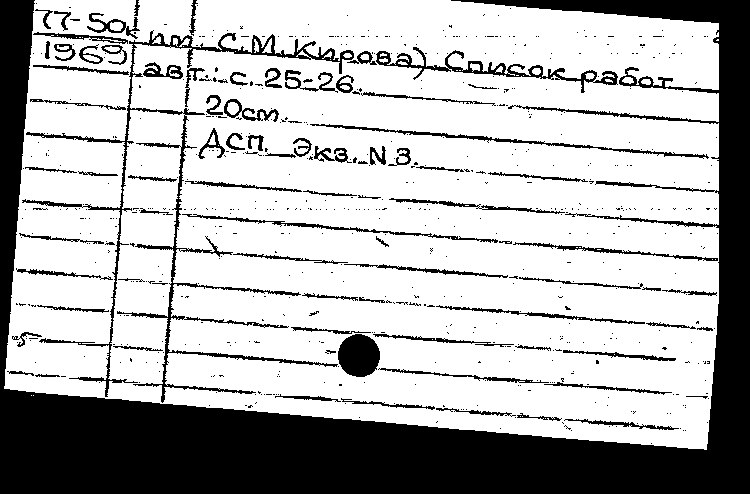 77-50к им. С.М. Кирова) Список работ
1969 авт.: с. 25-26.
20см.
ДСП. Экз. N 3.